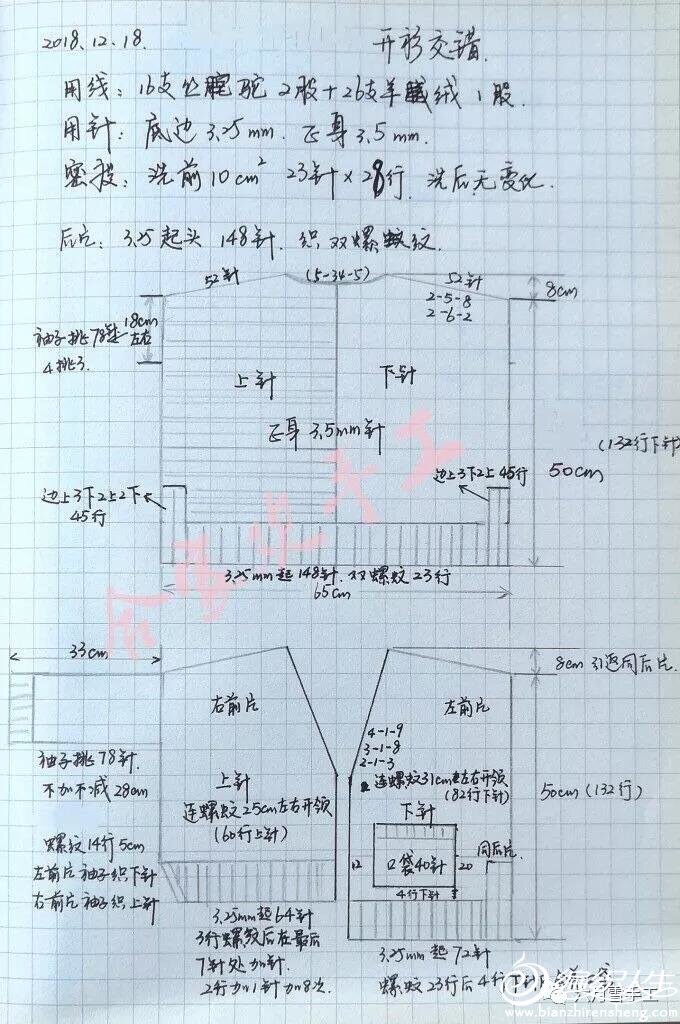 2018.12.18.
开衫交错.
用线: 16支丝驼 2股+26支羊绒1股.
用针: 底边 3.25mm. 正身 3.5mm.
密度: 洗前 10cm² 23针×28行. 洗后无变化.
后片: 3.25起头 148针. 织双螺纹.
52针
(5-34-5)
52针
2-5-8
2-6-2
8cm
18cm
左右
袖子挑78针
4挑3.
上针
下针
正身 3.5mm针
(132行下针)
50cm
边上3下2上2下
45行
边上3下2上45行
3.25mm起148针.双螺纹23行
65cm
33cm
8cm 引返同后片.
右前片
左前片
4-1-9
3-1-8
2-1-3
袖子挑78针.
不加不减28cm
上针
连螺纹25cm左右开领
(60行上针)
连螺纹31cm左右开领
(82行下针)
50cm(132行)
下针
螺纹14行5cm
左前片袖子织下针
右前片袖子织上针
12
口袋40针
20
同后片.
4行下针
3.25mm起64针
3行螺纹后在最后
7针处加针.
2行加1针加8次.
3.25mm起72针
螺纹23行后4行下针
www.bianzhirensheng.com